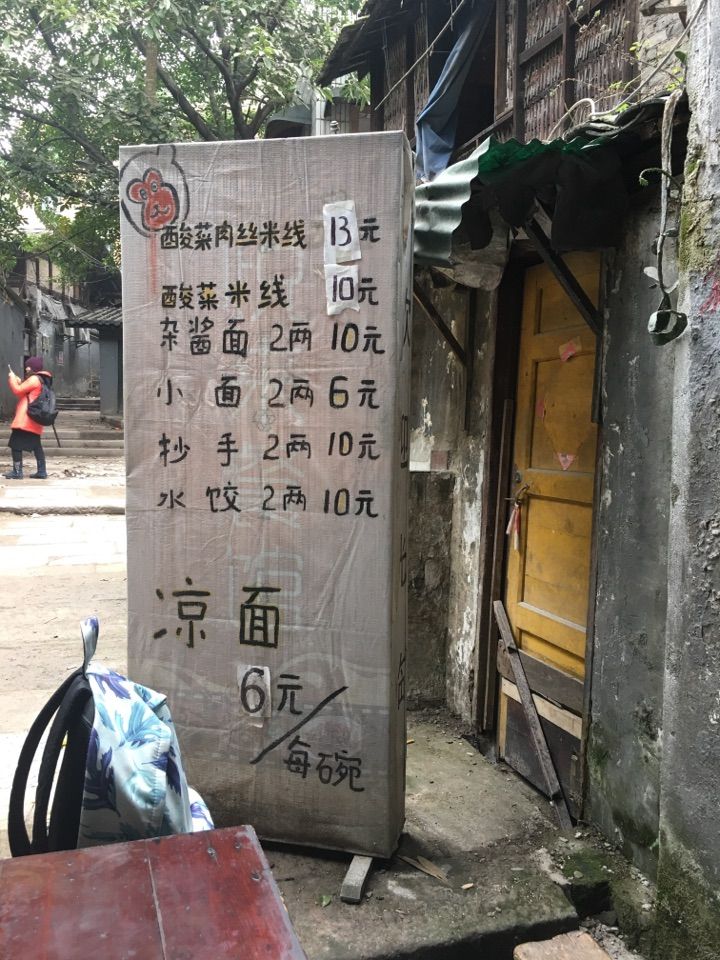 酸菜肉丝米线 13元
酸菜米线 10元
杂酱面 2两 10元
小面 2两 6元
抄手 2两 10元
水饺 2两 10元
凉面
6元/每碗